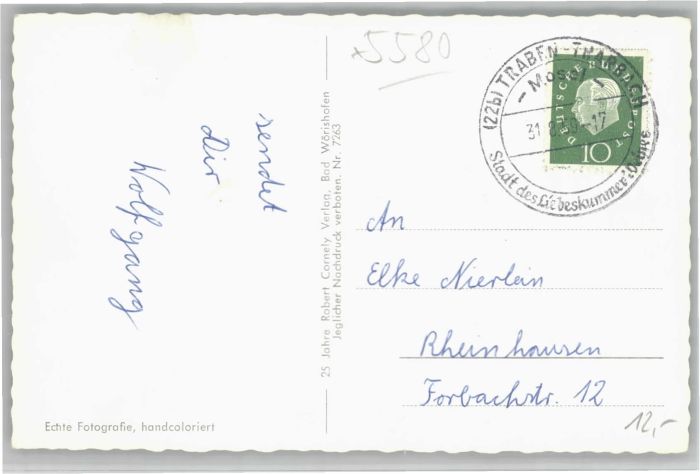 5580
(22b) TRABEN-TRARBACH
- Mosel -
31.8.60-17
Stadt des Liebeskummer
DEUTSCHE BUNDESPOST
10
sendet
Dir
Wolfgang
25 Jahre Robert Cornely Verlag, Bad Wörishofen
Jeglicher Nachdruck verboten. Nr. 7263
An
Elke Nierlein
Rheinhausen
Forbachstr. 12
12,-
Echte Fotografie, handcoloriert